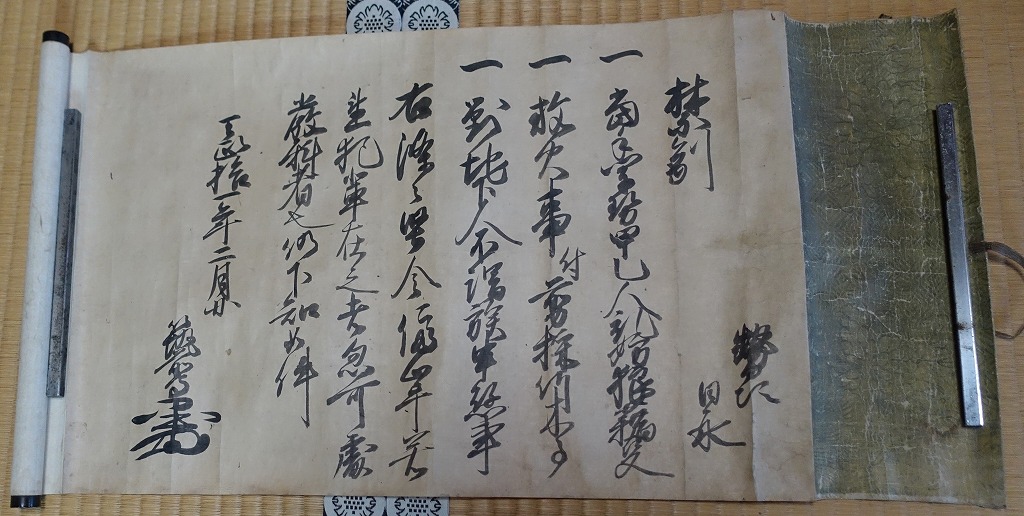 勢州
日永
禁制
一 当手軍勢甲乙人乱妨狼藉
一 放火事付剪採竹木事
一 対地下人不謂族申懸事
右條々堅令停止畢若
違犯輩在之者忽可處
厳科者也仍下知如件
天正拾一年二月日
筑前守